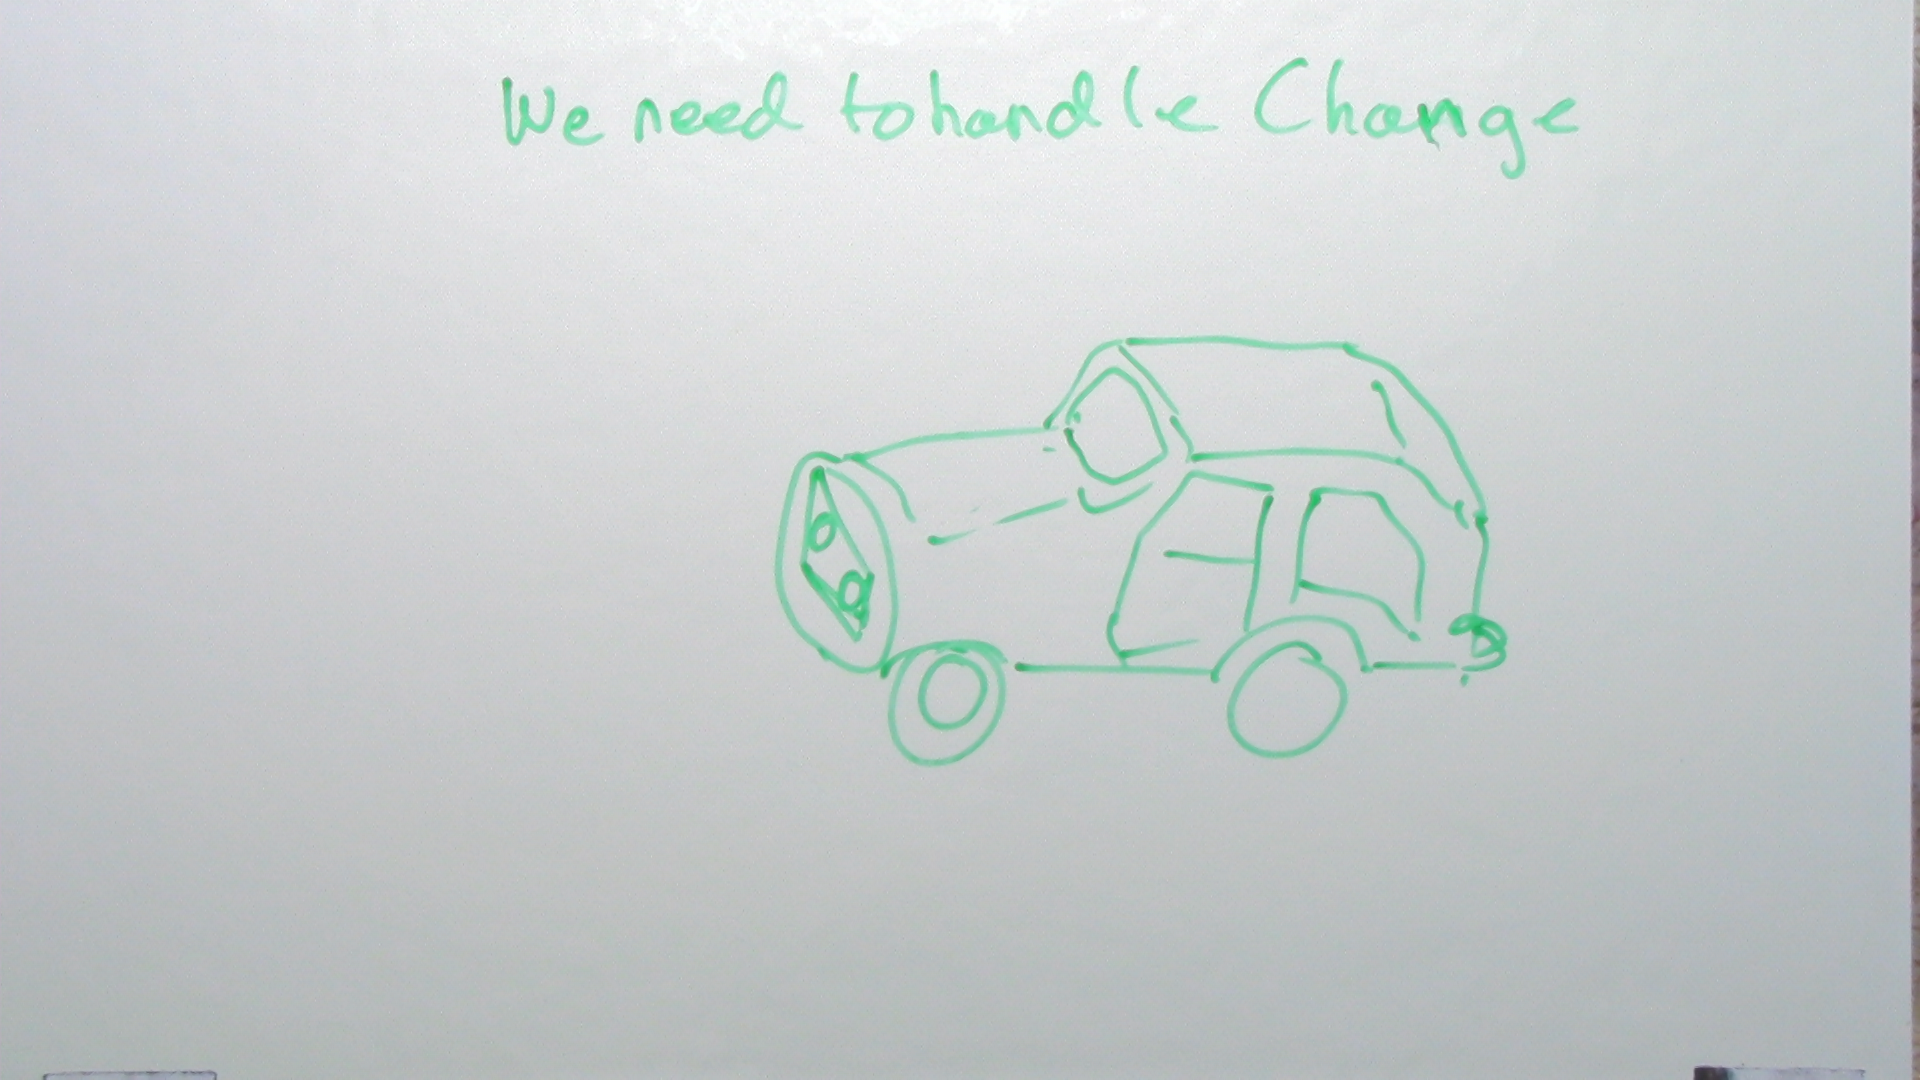 We need to handle Change